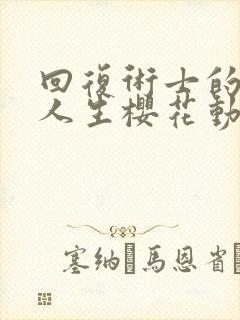 回復術士的
人生櫻花動
塞納 馬恩省